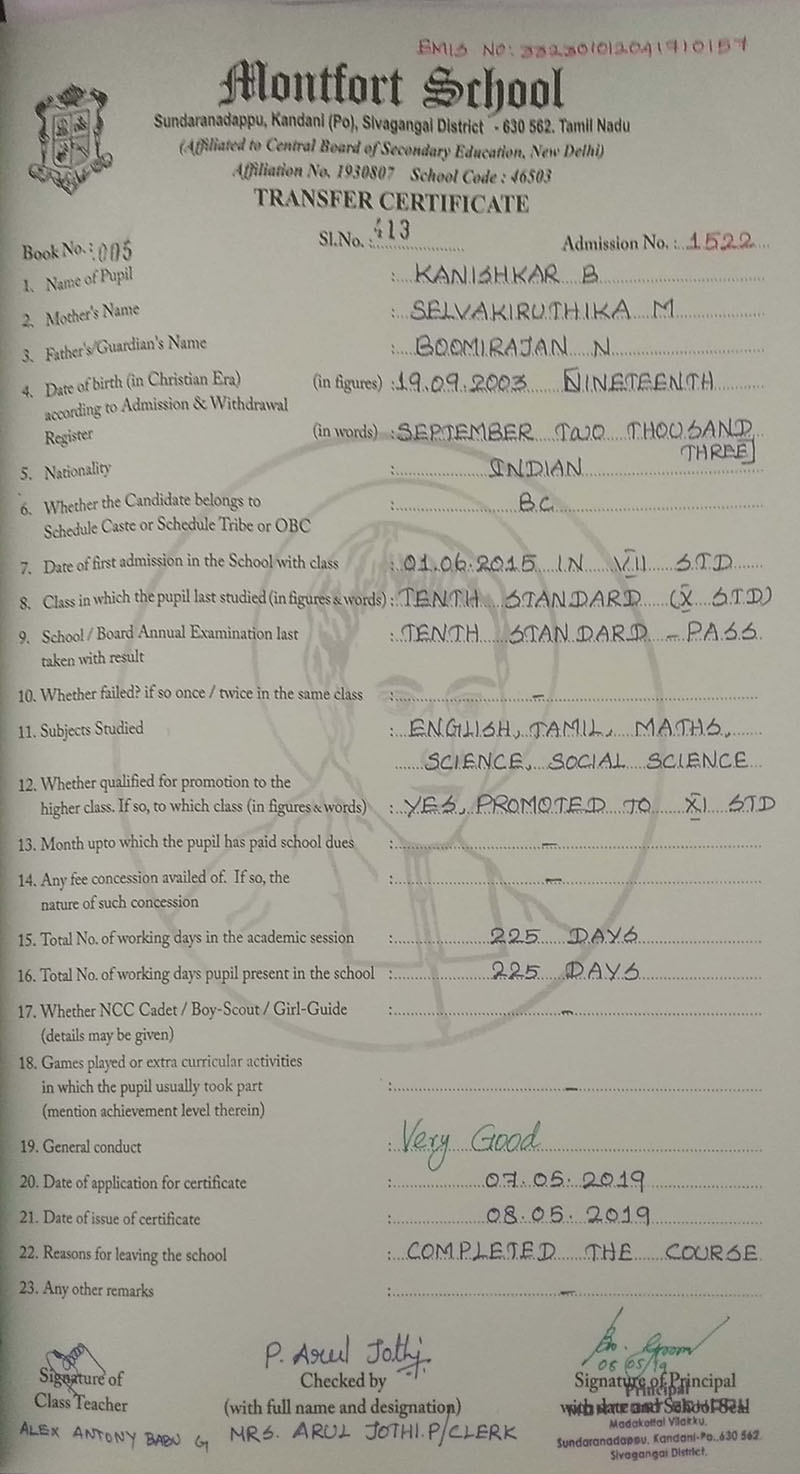 EMIS NO: 332301012041710157
Montfort School
Sundaranadappu, Kandani (Po), Sivagangai District - 630 562. Tamil Nadu
(Affiliated to Central Board of Secondary Education, New Delhi)
Affiliation No. 1930807 School Code : 46503
TRANSFER CERTIFICATE
Book No.: 005 Sl.No. : 413 Admission No. : 1522
1. Name of Pupil : KANISHKAR B
2. Mother's Name : SELVAKIRUTHIKA M
3. Father's/Guardian's Name : BOOMIRAJAN N
4. Date of birth (in Christian Era) (in figures) : 19.09.2003 [NINETEENTH
according to Admission & Withdrawal
Register (in words) : SEPTEMBER TWO THOUSAND
THREE]
5. Nationality : INDIAN
6. Whether the Candidate belongs to : BC
Schedule Caste or Schedule Tribe or OBC
7. Date of first admission in the School with class : 01.06.2015 IN VII STD
8. Class in which the pupil last studied (in figures & words) : TENTH STANDARD (X STD)
9. School / Board Annual Examination last : TENTH STANDARD - PASS
taken with result
10. Whether failed? if so once / twice in the same class : -
11. Subjects Studied : ENGLISH, TAMIL, MATHS,
SCIENCE, SOCIAL SCIENCE
12. Whether qualified for promotion to the
higher class. If so, to which class (in figures & words) : YES, PROMOTED TO XI STD
13. Month upto which the pupil has paid school dues : -
14. Any fee concession availed of. If so, the : -
nature of such concession
15. Total No. of working days in the academic session : 225 DAYS
16. Total No. of working days pupil present in the school : 225 DAYS
17. Whether NCC Cadet / Boy-Scout / Girl-Guide : -
(details may be given)
18. Games played or extra curricular activities
in which the pupil usually took part : -
(mention achievement level therein)
19. General conduct : Very Good
20. Date of application for certificate : 07.05.2019
21. Date of issue of certificate : 08.05.2019
22. Reasons for leaving the school : COMPLETED THE COURSE
23. Any other remarks : -
P. Arul Jothi
08/05/19
Signature of Checked by Signature of Principal
Principal
Class Teacher (with full name and designation) with date and School Seal
ALEX ANTONY BABU G MRS. ARUL JOTHI.P/CLERK
Madakottai Vilakku.
Sundaranadappu, Kandani-Po..630 562.
Sivagangai District.